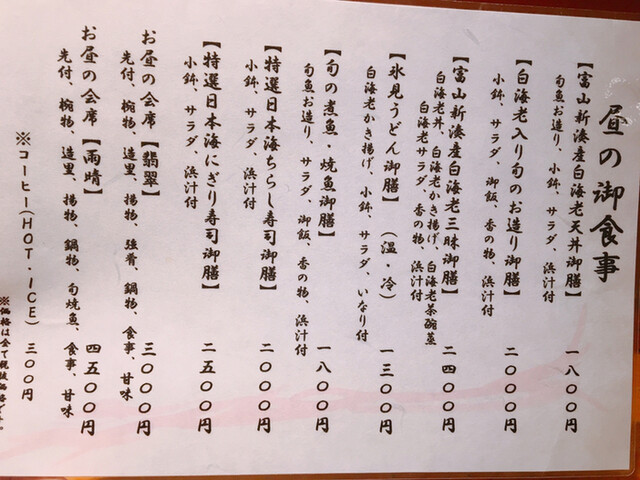 昼の御食事
【富山新湊産白海老天丼御膳】 一八〇〇円
旬魚お造り、小鉢、サラダ、浜汁付
【白海老入り旬のお造り御膳】 二〇〇〇円
小鉢、サラダ、御飯、香の物、浜汁付
【富山新湊産白海老三昧御膳】 二四〇〇円
白海老丼、白海老かき揚げ、白海老茶碗蒸
白海老サラダ、香の物、浜汁付
【氷見うどん御膳】(温・冷) 一三〇〇円
白海老かき揚げ、小鉢、サラダ、いなり付
【旬の煮魚・焼魚御膳】 一八〇〇円
旬魚お造り、サラダ、御飯、香の物、浜汁付
【特選日本海ちらし寿司御膳】 二〇〇〇円
小鉢、サラダ、浜汁付
【特選日本海にぎり寿司御膳】 二五〇〇円
小鉢、サラダ、浜汁付
お昼の会席【翡翠】 三〇〇〇円
先付、椀物、造里、揚物、強肴、鍋物、食事、甘味
お昼の会席【雨晴】 四五〇〇円
先付、椀物、造里、揚物、鍋物、旬焼魚、食事、甘味
※コーヒー(HOT・ICE) 三〇〇円
※価格は全て税抜価格です。